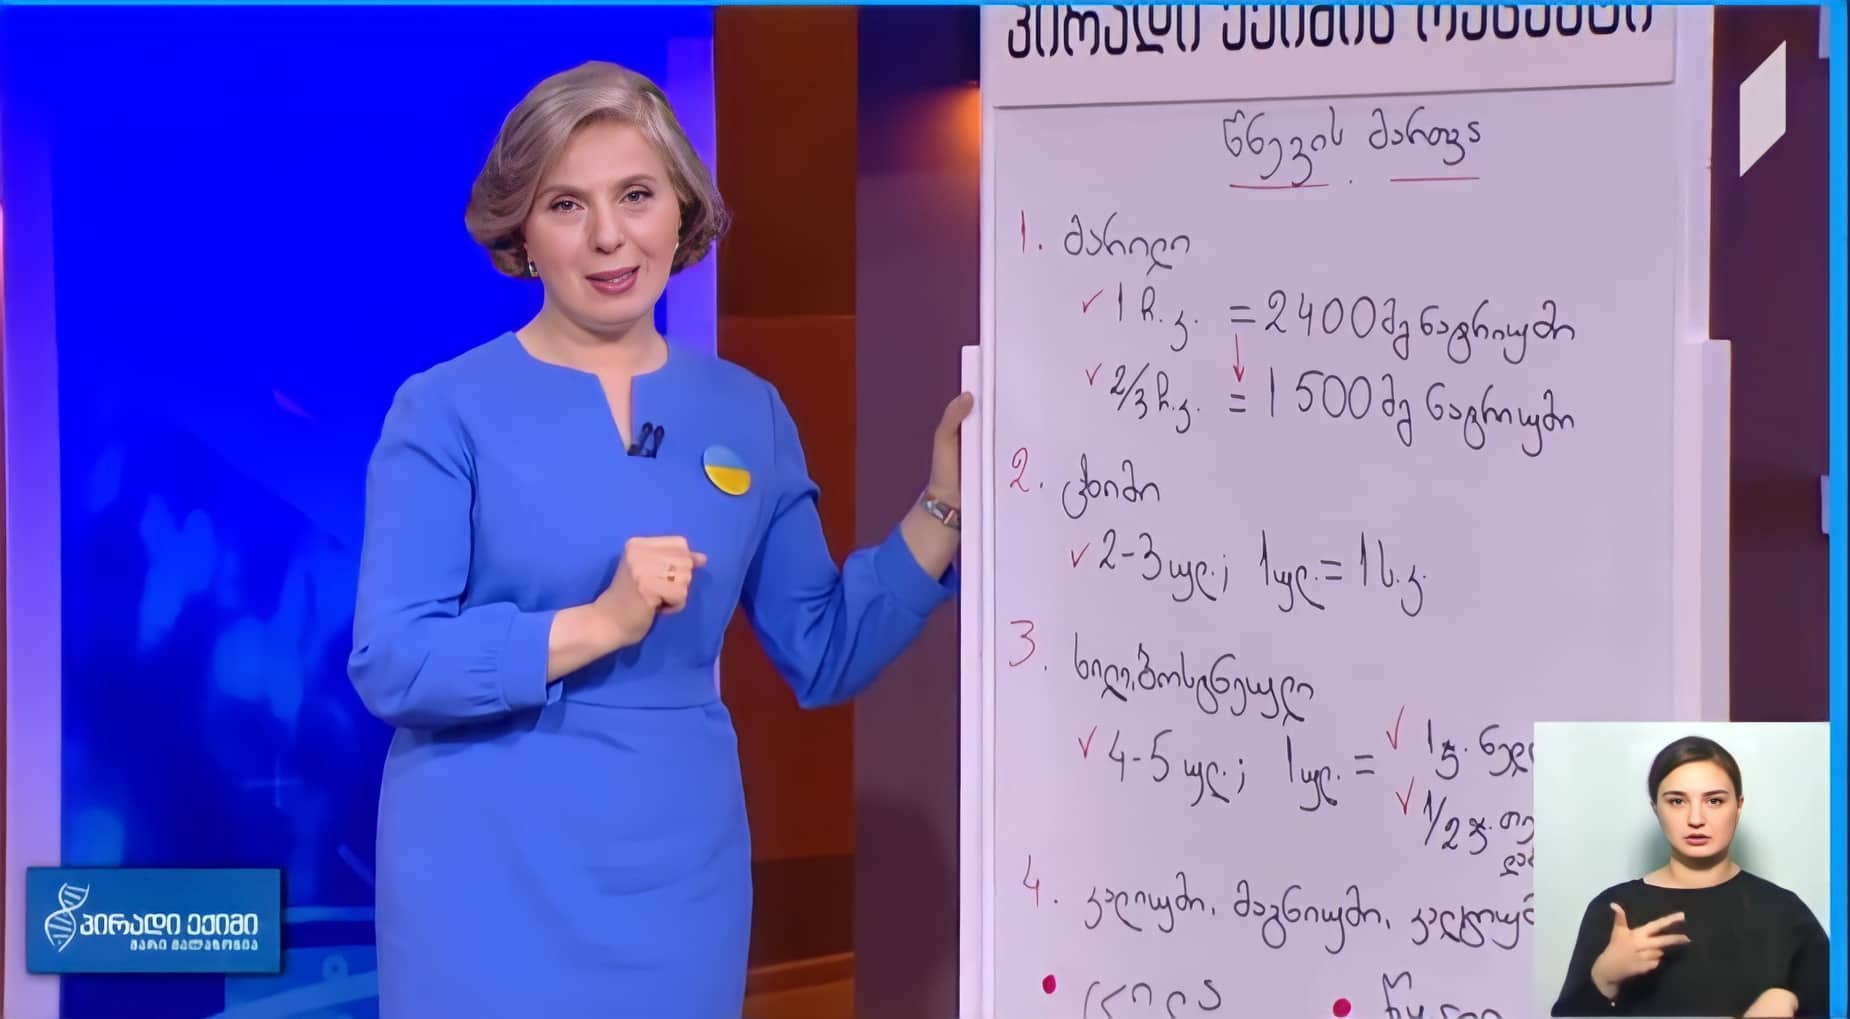 პირადი ექიმის რეცეპტი
წნევის მართვა
1. მარილი
✓ 1 ჩ.კ. = 2400 მგ ნატრიუმი
✓ 2/3 ჩ.კ. = 1500 მგ ნატრიუმი
2. ცხიმი
✓ 2-3 ულ.; 1 ულ. = 1 ს.კ.
3. ხილი, ბოსტნეული
✓ 4-5 ულ.; 1 ულ. = ✓ 1 ჭ. ნედ
✓ 1/2 ჭ.
4. კალიუმი, მაგნიუმი, კალციუმ
პირადი ექიმი
მარი მალაზონია